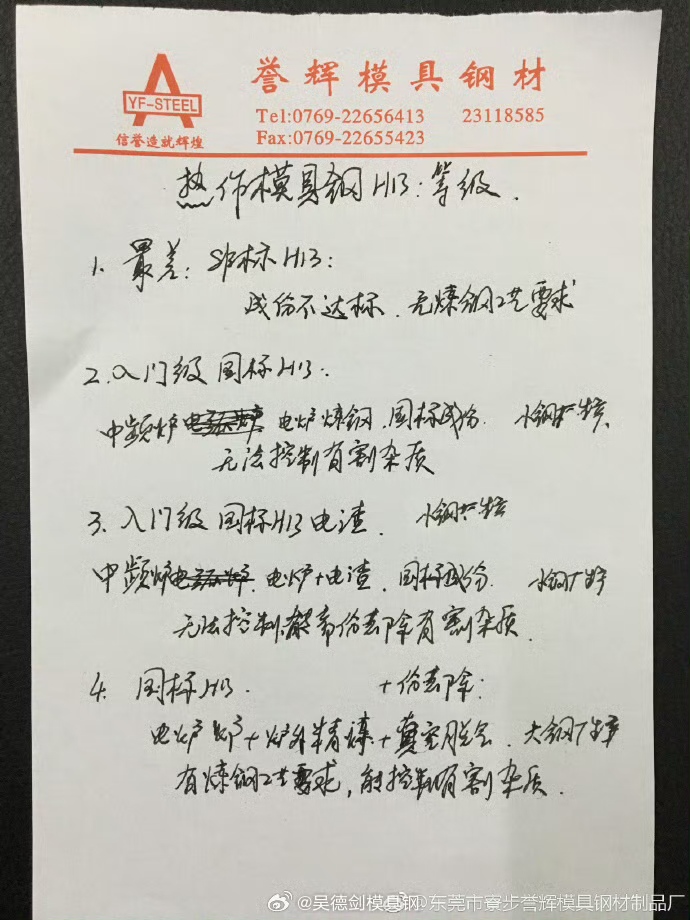 YF-STEEL
信誉造就辉煌
誉辉模具钢材
Tel:0769-22656413 23118585
Fax:0769-22655423
热作模具钢H13:等级.
1. 最差:非标H13:
成份不达标.无炼钢工艺要求
2.入门级 国标H13:
中频炉 电炉炼钢.国标成份. 小钢厂
无法控制有害杂质
3.入门级 国标H13电渣. 小钢厂
中频炉 电炉+电渣.国标成份. 小钢厂
无法控制 部份去除有害杂质.
4. 国标H13. +份去除:
电炉 炉+炉外精炼+真空脱 . 大钢厂
有炼钢工艺要求,能控制有害杂质.
@吴德剑模具钢 @东莞市寮步誉辉模具钢材制品厂